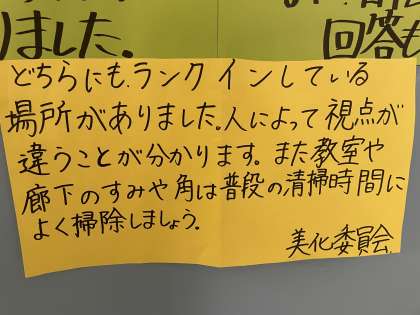 りました。
回答も
どちらにも、ランクインしている
場所がありました。人によって視点が
違うことが分かります。また教室や
廊下のすみや角は普段の清掃時間に
よく掃除しましょう。
美化委員会